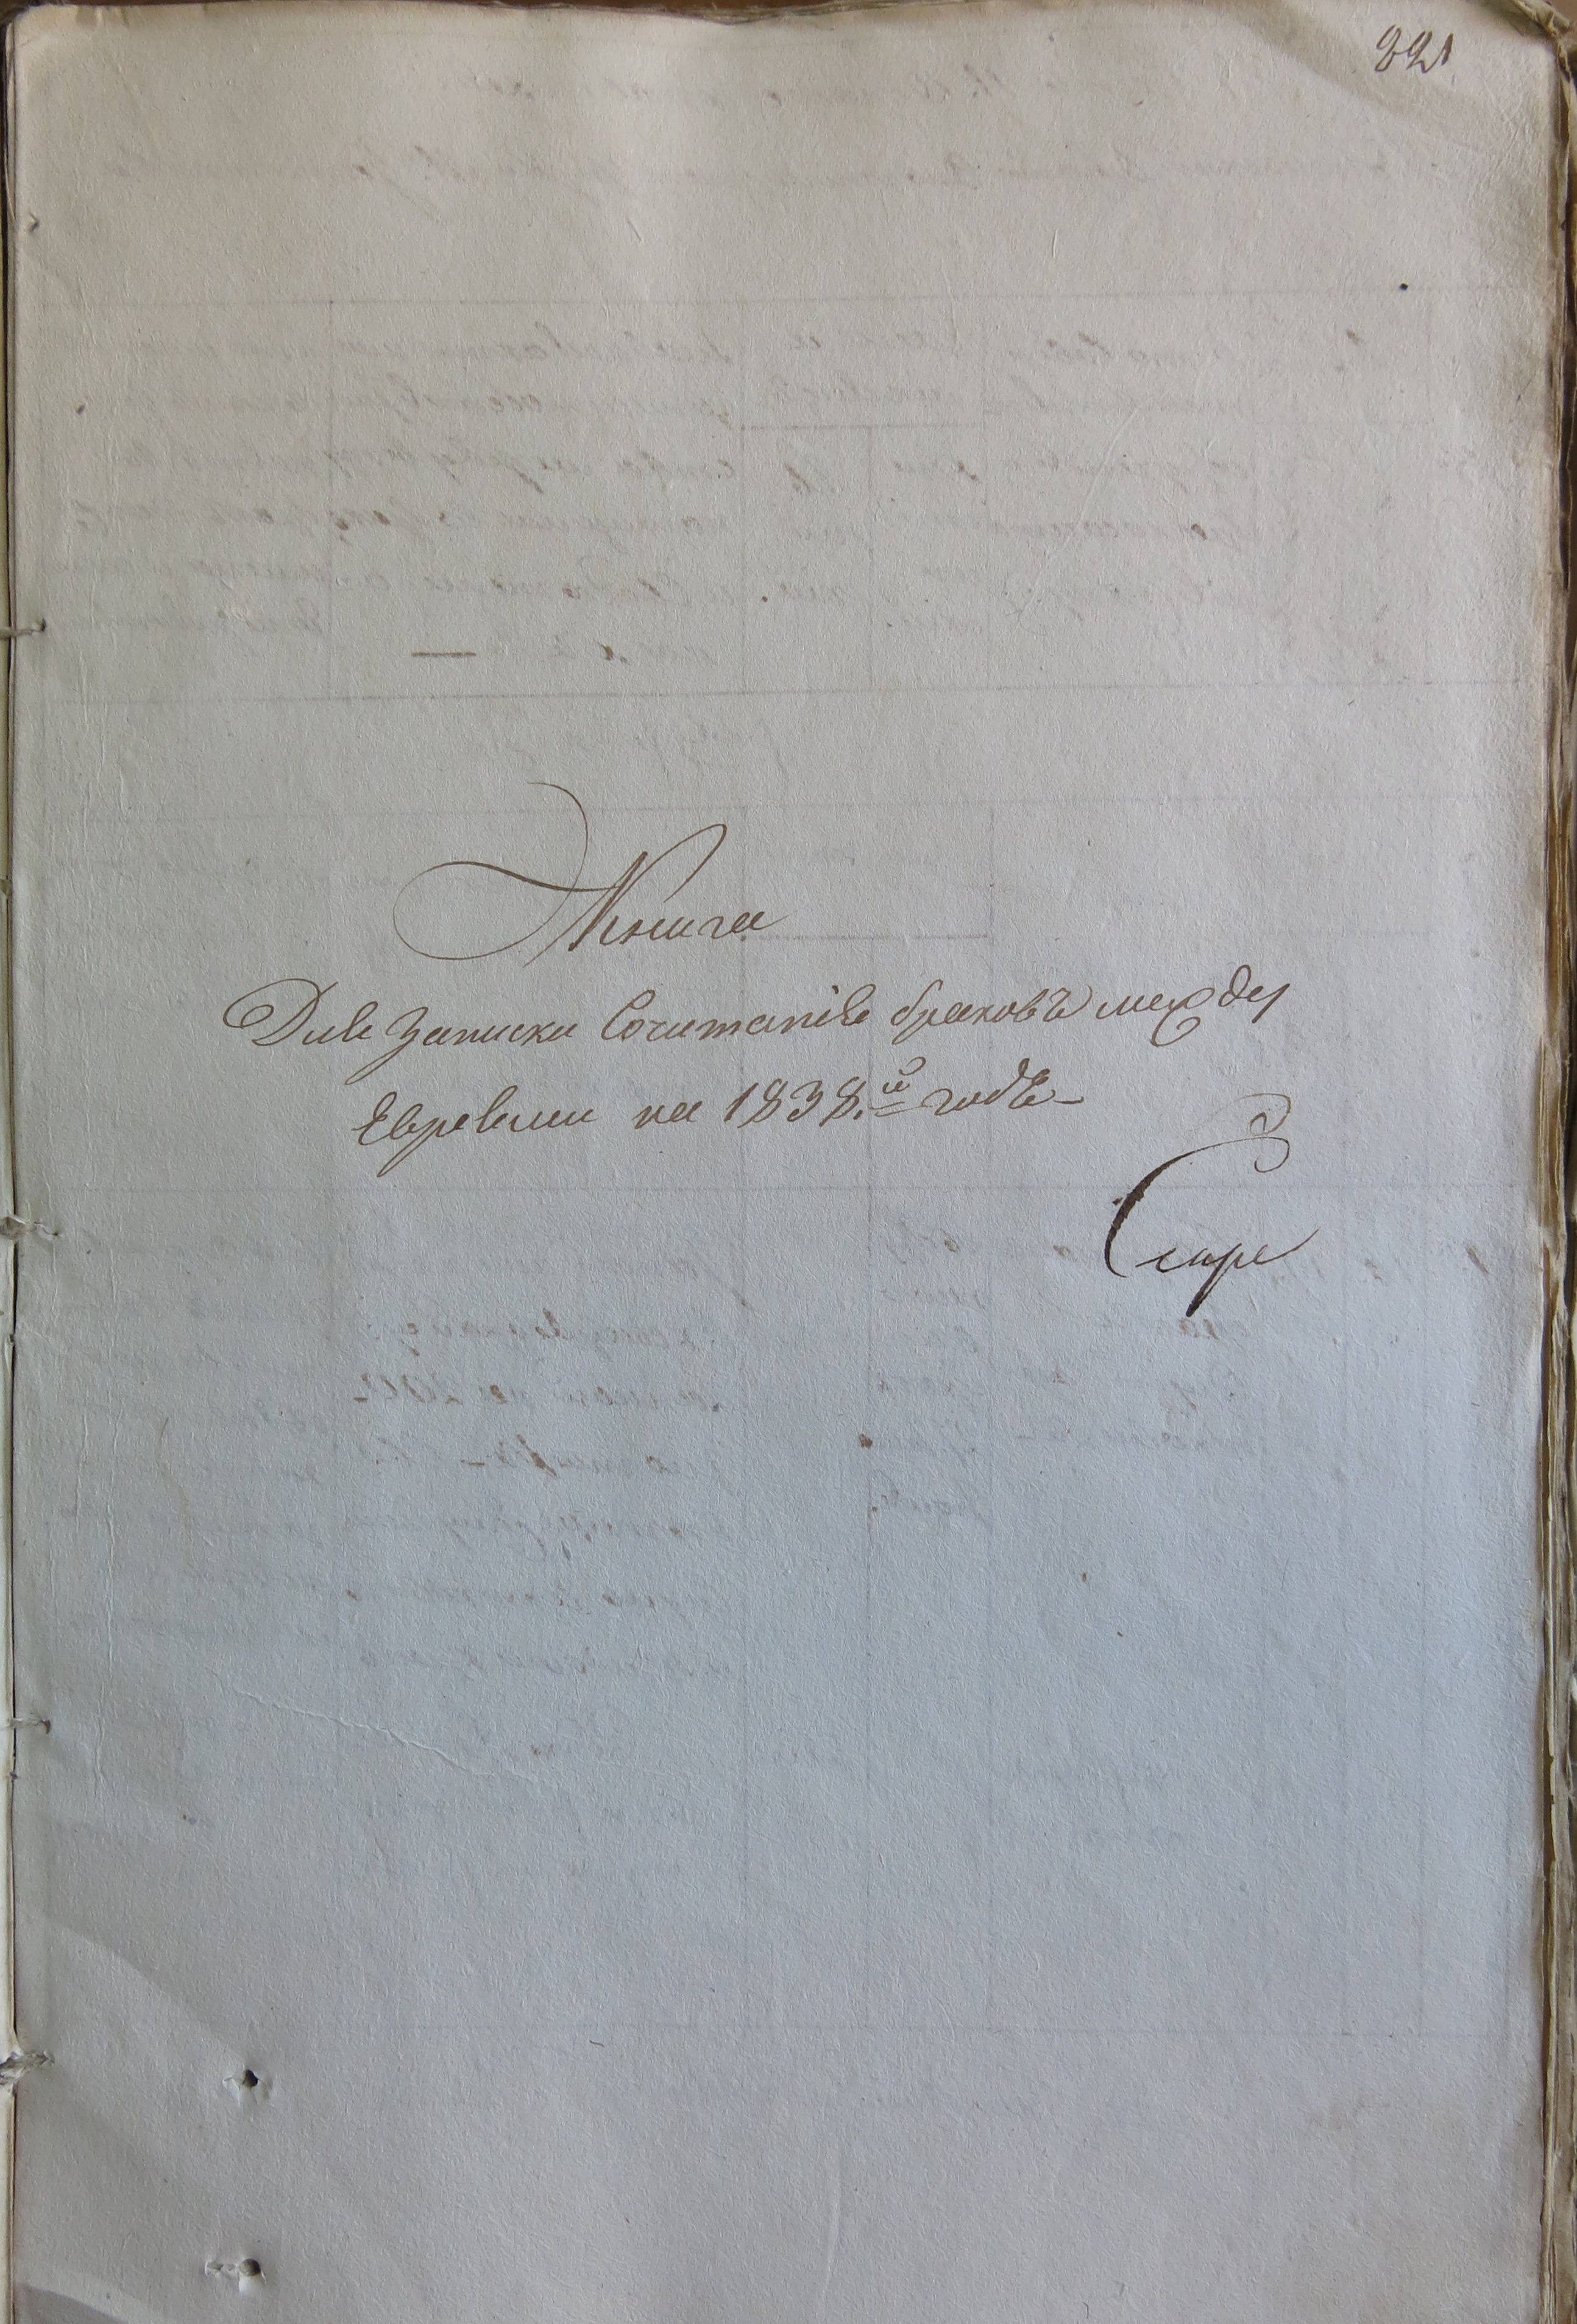 221
Книга
Для записки Сочитанія браковъ между
Евреями на 1838.й годъ